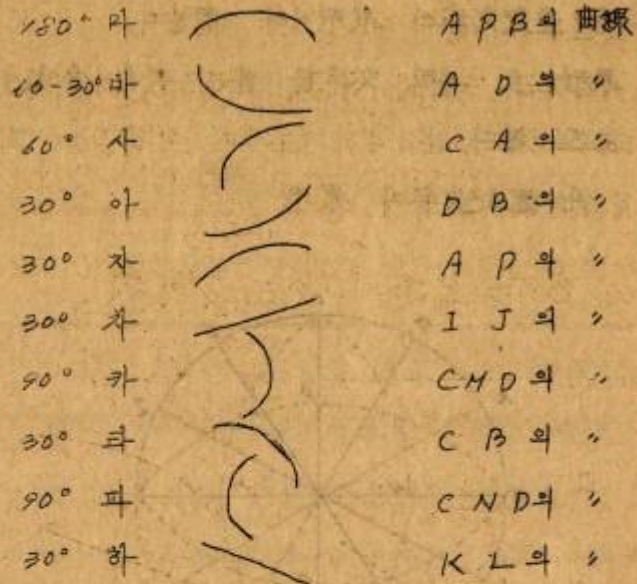 180° 마 A P B의 曲線
60-30° 바 A D의 〃
60° 사 C A의 〃
30° 아 D B의 〃
30° 자 A P의 〃
30° 차 I J의 〃
90° 카 C M D의 〃
30° 타 C B의 〃
90° 파 C N D의 〃
30° 하 K L의 〃